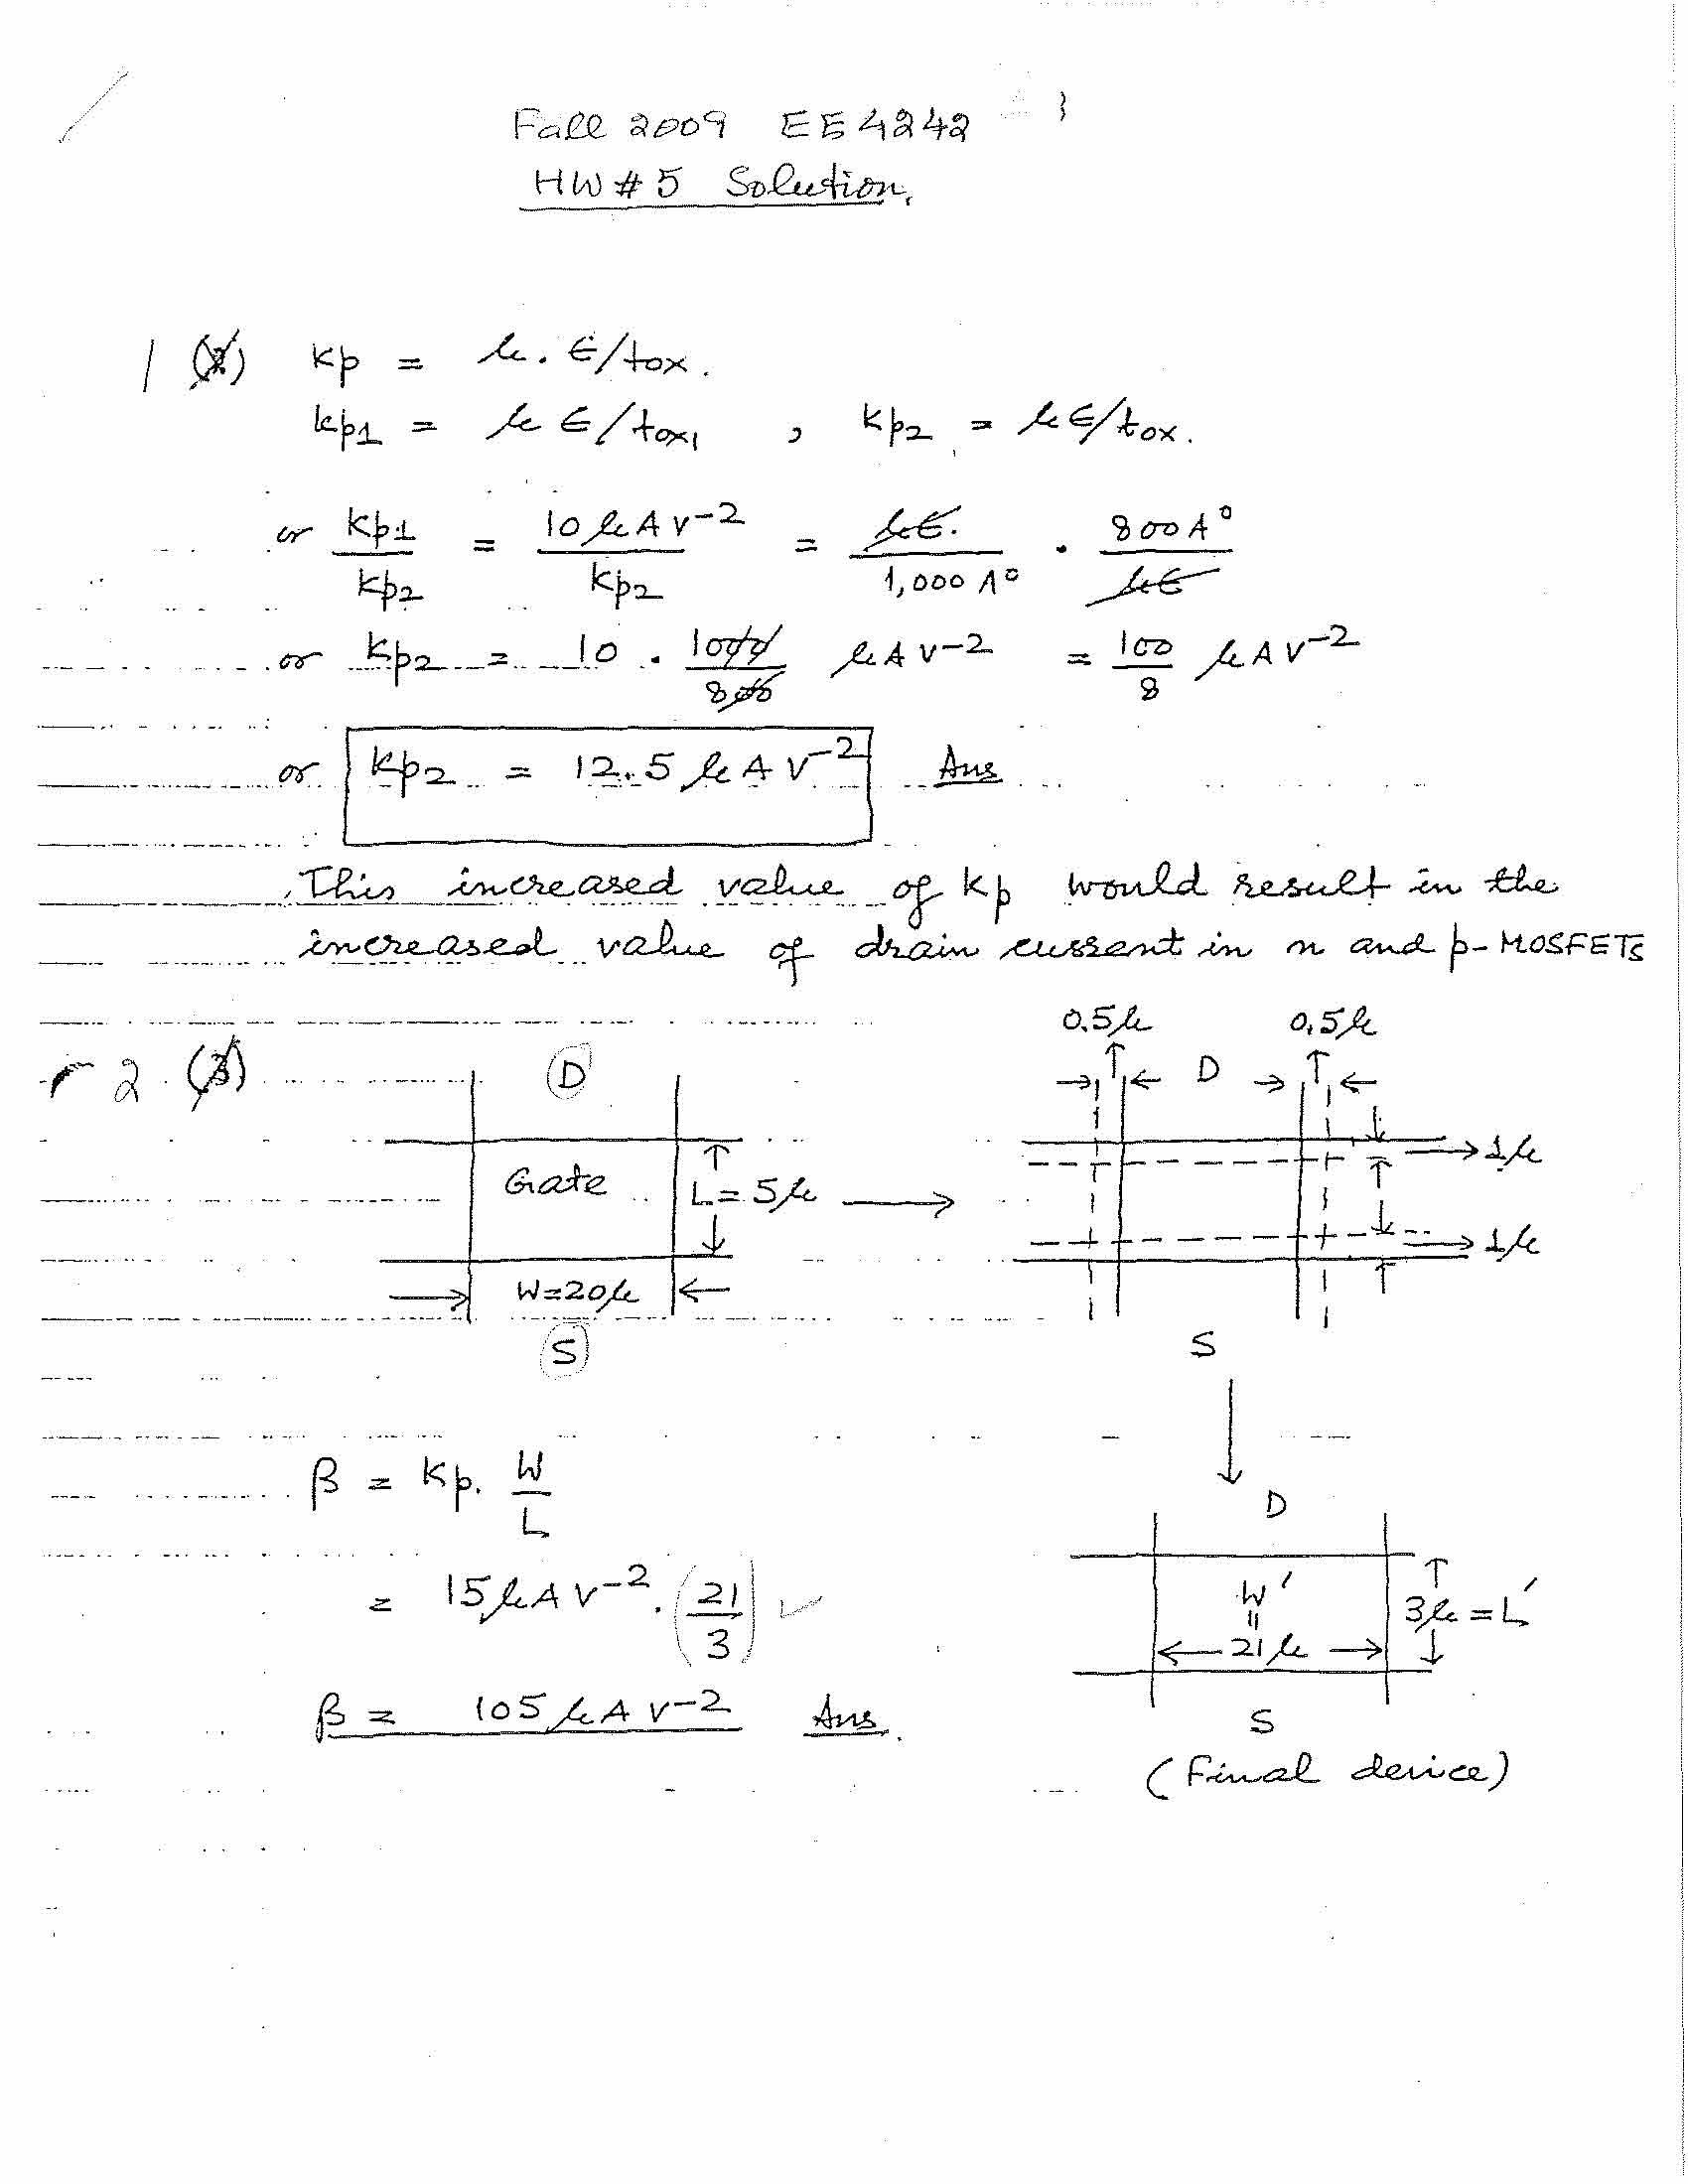 Fall 2009 EE4242
HW#5 Solution.
1 (2) Kp = μ. ε/tox.
kp1 = μ ε/tox1 , Kp2 = με/tox.
or Kp1/Kp2 = 10 μA V-2/Kp2 = με./1,000 A° · 800 A°/με
or Kp2 = 10 . 1000/800 μA V-2 = 100/8 μA V-2
or Kp2 = 12.5 μA V-2 Ans
This increased value of Kp would result in the
increased value of drain current in n and p-MOSFETs
2. (3)
D
Gate
L = 5μ
W=20μ
S
0.5μ 0.5μ
D
1μ
1μ
S
β = Kp. W/L
= 15μA V-2. (21/3)
β = 105 μA V-2 Ans.
D
W'
=
21μ
3μ = L'
S
(Final device)